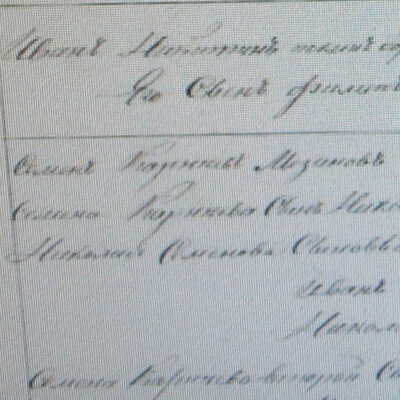 Иванъ Никитинъ
Его Сынъ Филипъ
Семенъ Карпеевъ Мезиновъ
Семена Карпеева Сынъ Нико
Николая Семенова Сыновья
Иванъ
Никол
Семена Карпеева второй С